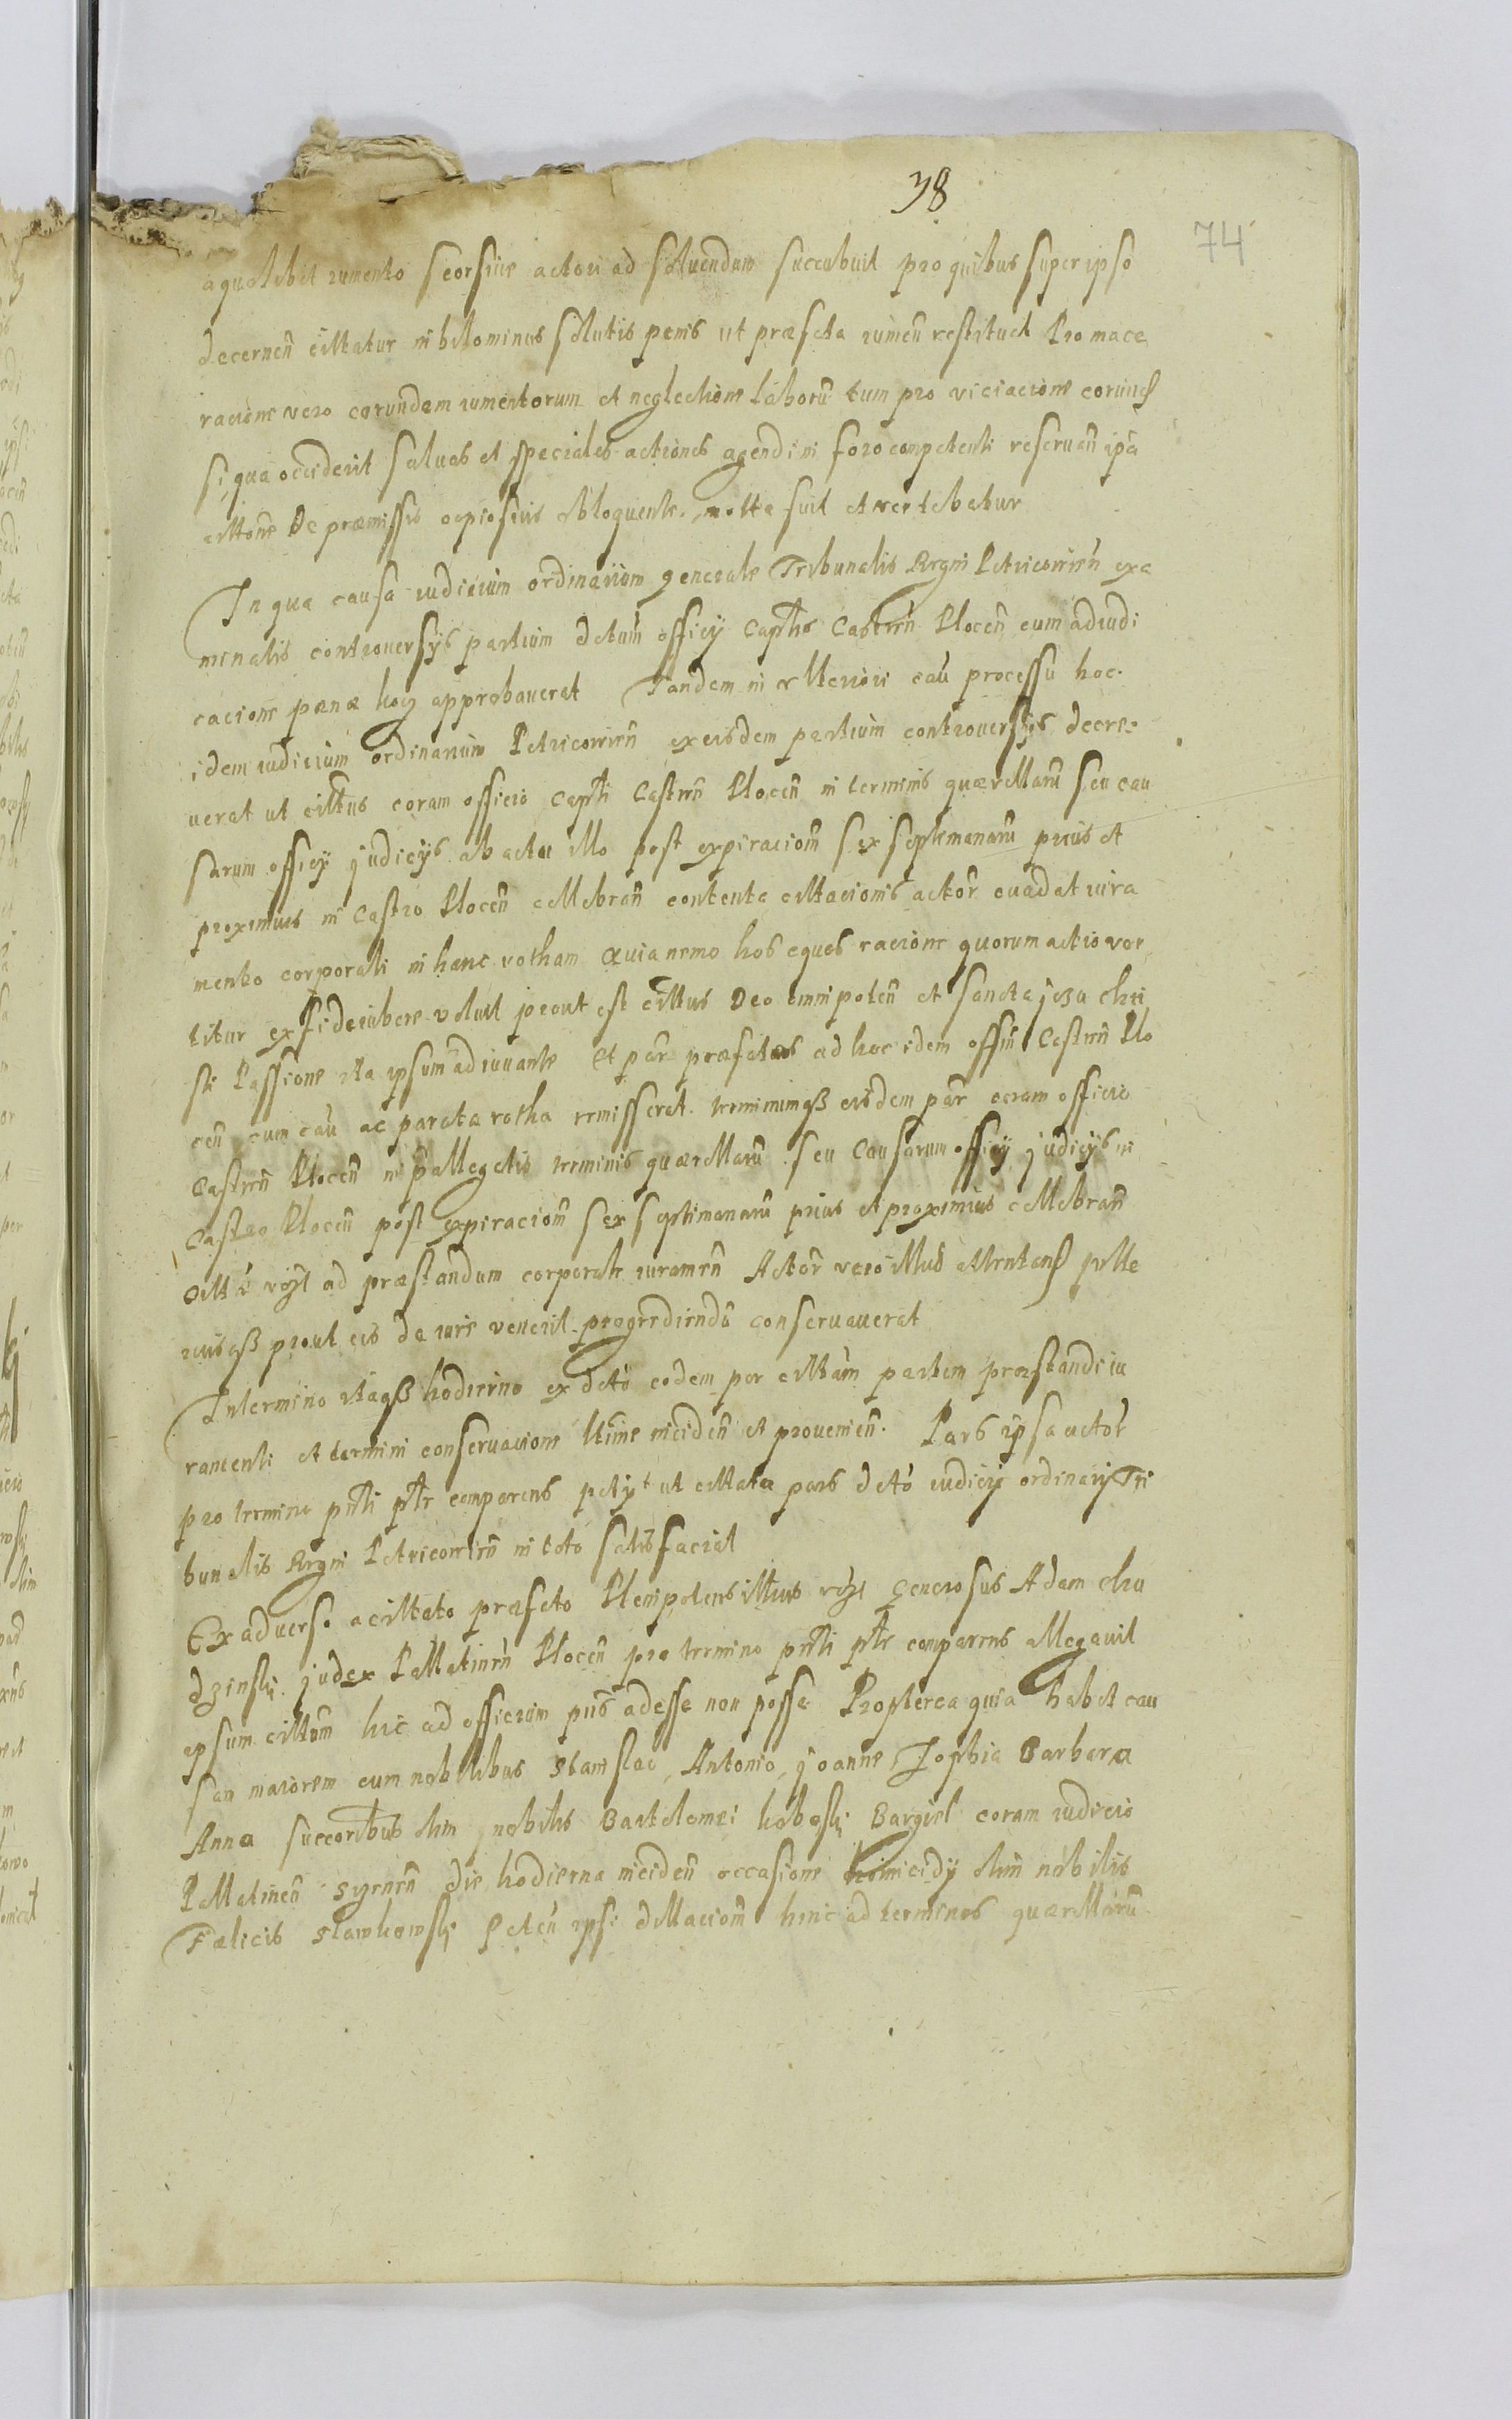 38
74
a quolibet iumento seorsive actori ad soluendum succubuit pro quibus super ipso
decernen cittatur nihilominus solutis penis ut præfcta iumen restituat Pro mace
racione vero earundem iumentorum et neglectione laborũ tum pro viciacione eorund
si qua occiderit saluas et speciales actiones agendi in foro competenti reseruañ ipa
cittone De præmissis copiosius obloquente motta fuit et vertebatur
In qua causa iudicium ordinarium generale Tribunalis Regni Petricovien exa
minatis controuersys partium dctum officy Capthis Castreñ Plocen cum adiudi
cacione pænæ approbauerat Tandem in vlteriori cau processu hoc
idem iudicium ordinarium Petricovien ex eisdem partium controuersijs decre
uerat ut cittus coram officio Capth Castren Plocen in terminis quærellarũ seu cau
sarum officy judicys ab actu illo post expiracionem sex septemanarũ prius et
proximius in Castro Plocen cellebrañ contenta cittacionis actor euadat iura
mento corporali in hanc rotham Quia nemo hos equos racione quorum actio ver
titur ex side iubere voluit prout est cittus Deo omnipoten et sancta jesu chri
sti Passione ita ipsum adiuuante Et par præfatas ad hoc idem offm Castren Plo
cen cum cau ac parata rotha remisserat terminumqß eisdem par coram officio
Castren Plocen in pallegatis terminis quærellarũ seu Causarum officy judicys in
Castro Plocen post expiracionem sex septimanarũ prius et proximius cellebrañ
ad præstandum corporale iuramen Actor vero illud attentand
prout eis de iure venerit progrediendũ conseruauerat
In termino itaqß hodierno ex dcto eodem per cittam partem præstandi iu
ramenti et termini conseruacione ltime inciden et prouenien. Pars ipsa actor
pro termino pnti ptr comparens petyt ut cittata pars dcto iudicy ordinary Tri
bunalis Regni Petricovien in toto satisfaciat
Ex aduerso a cittato præfcto Plenipotens illius Generosus Adam chu
dzinski judex Pallatinen Plocen pro termino pnti ptr comparens allegauit
ipsum cittum hic ad officium pns adesse non posse Propterea quia habet cau
sam maiorem cum nobilibus Stanislao, Antonio, joanne Zophia Barbara
Anna succoribus olim nobilis Bartolomei Bargiel coram iudicio
Pallatinen Syrnen die hodierna inciden occasione homicidy olim nobilis
Fælicis Slawkowski Peten ipsi dillacionem hinc ad terminos quærellarũ